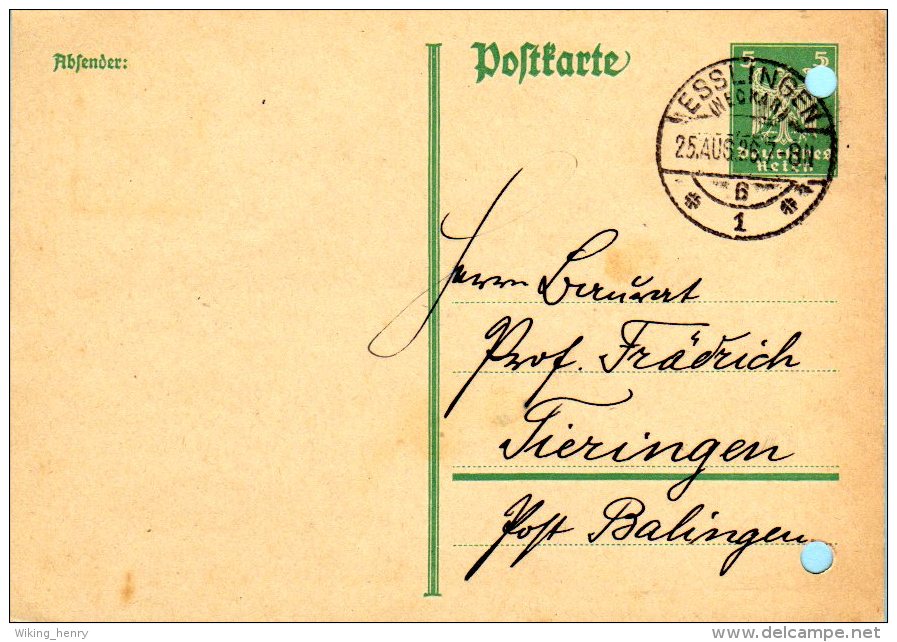 Absender:
Postkarte
5 5
ESSLINGEN
(NECKAR)
25.AUG.26.7-8N
Deutsches
Reich
6
1
Herrn Baurat
Prof. Frädrich
Tieringen
Post Balingen
Wiking_henry
delcampe.net